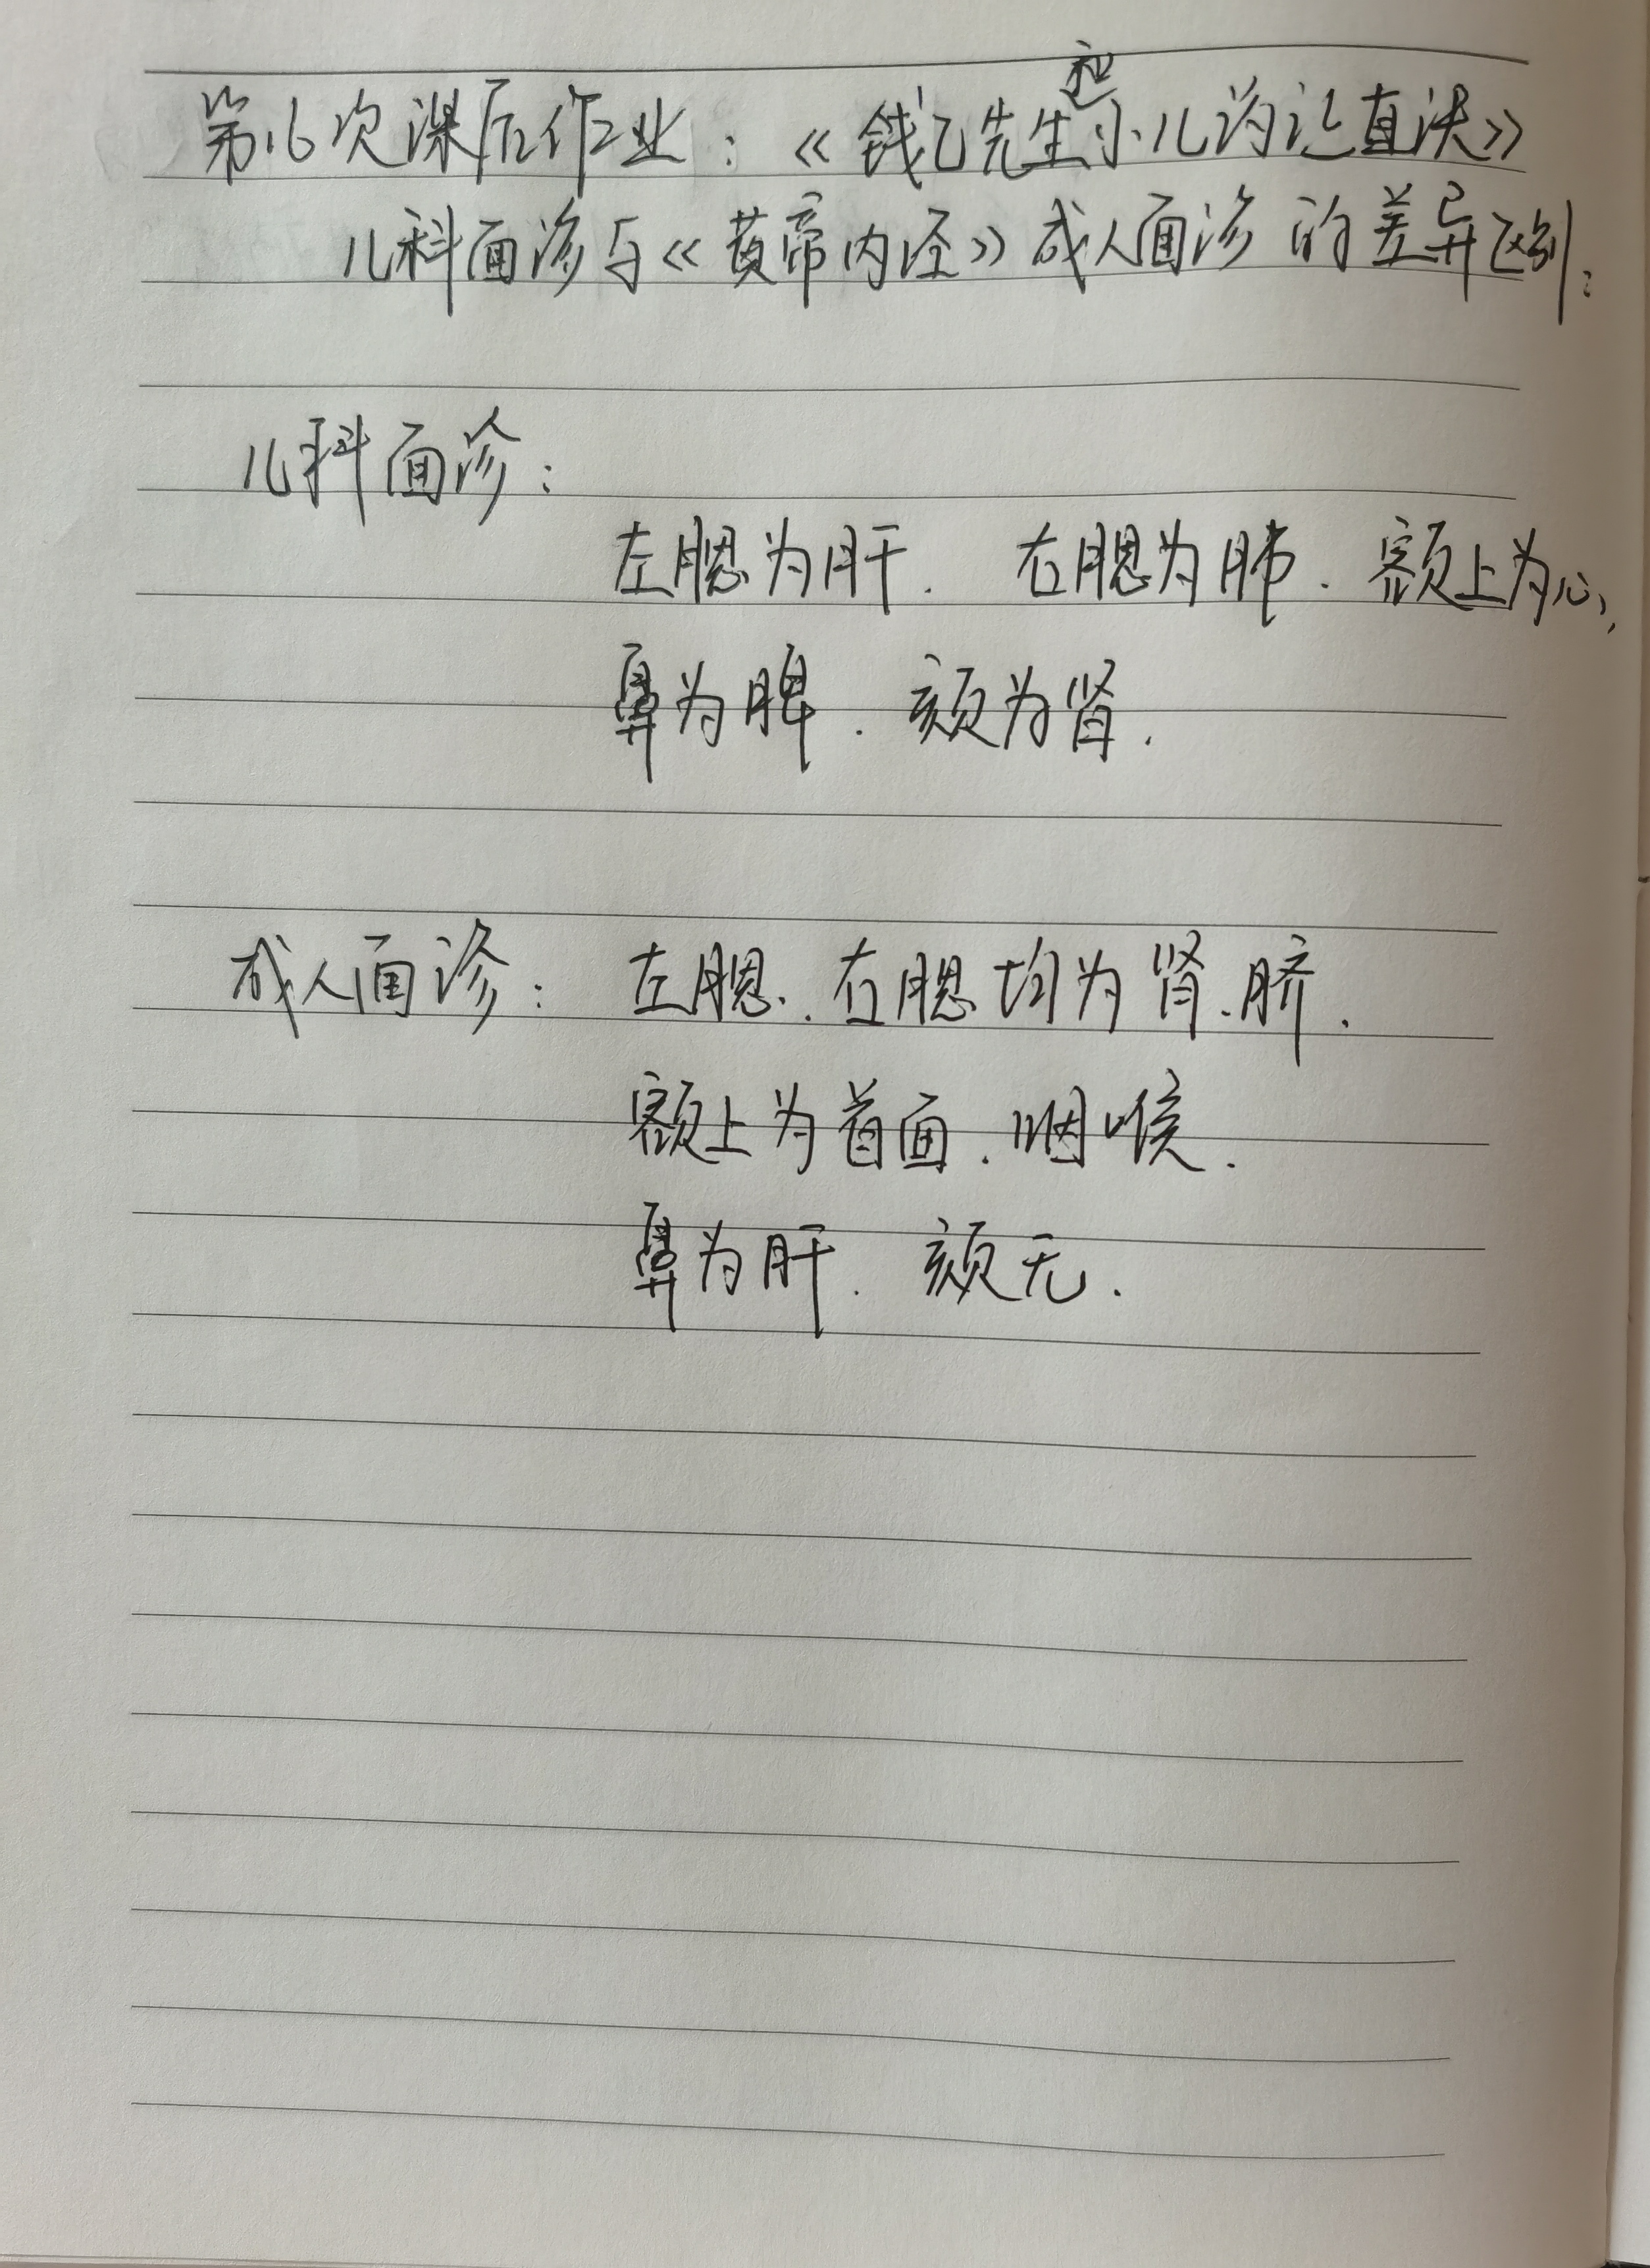 第16次课后作业：《钱乙先生小儿药证直诀》
儿科面诊与《黄帝内经》成人面诊的差异区别：
儿科面诊：
左腮为肝．右腮为肺．额上为心，
鼻为脾．颏为肾．
成人面诊：左腮．右腮均为肾、脐．
额上为首面．咽喉．
鼻为肝．颏无．